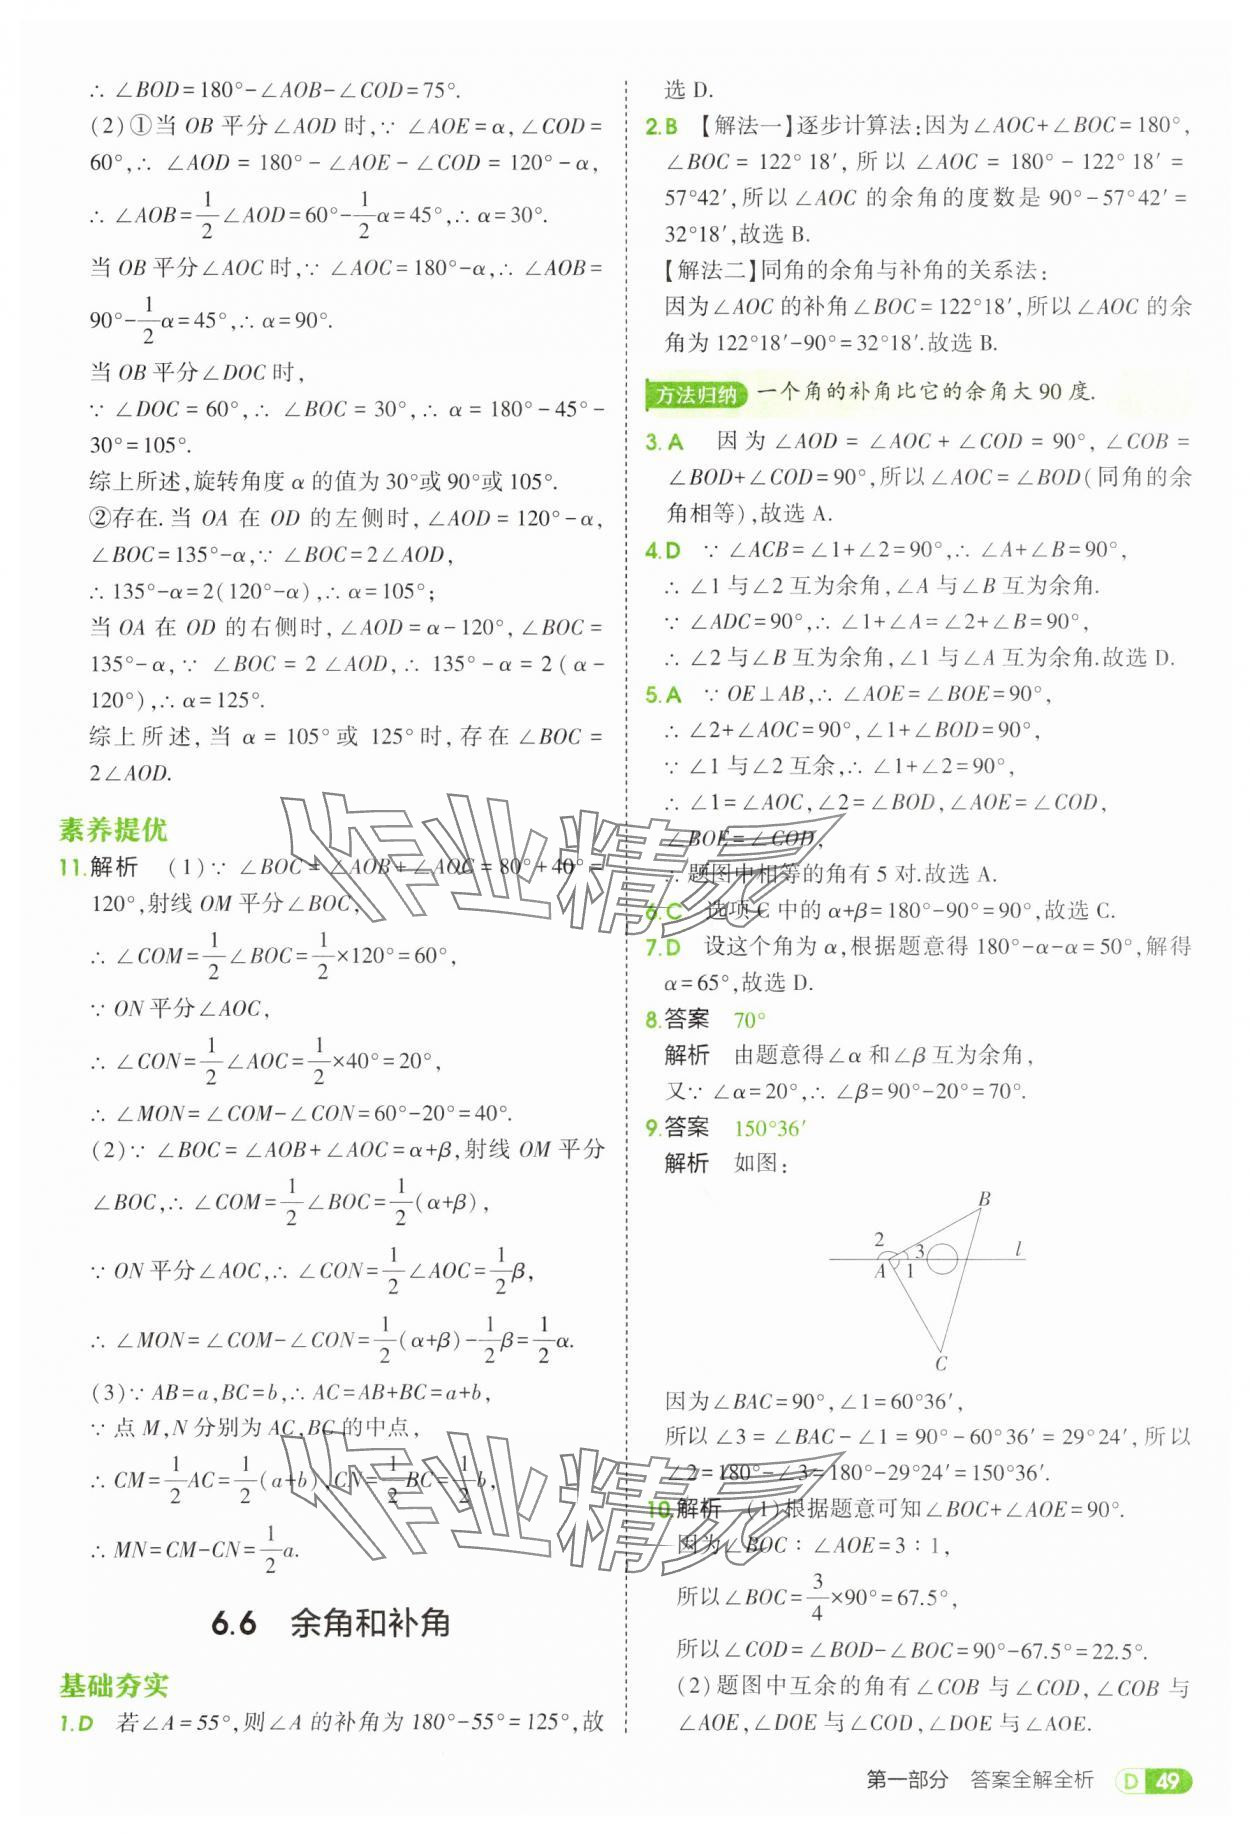 ∴ ∠BOD=180°-∠AOB-∠COD=75°.
(2)①当 OB 平分∠AOD 时,∵ ∠AOE=α,∠COD=
60°,∴ ∠AOD = 180° - ∠AOE - ∠COD = 120° - α,
∴ ∠AOB=1/2∠AOD=60°-1/2α=45°,∴ α=30°.
当 OB 平分∠AOC 时,∵ ∠AOC=180°-α,∴ ∠AOB=
90°-1/2α=45°,∴ α=90°.
当 OB 平分∠DOC 时,
∵ ∠DOC = 60°,∴ ∠BOC = 30°,∴ α = 180° - 45° -
30°=105°.
综上所述,旋转角度 α 的值为 30°或 90°或 105°.
②存在. 当 OA 在 OD 的左侧时,∠AOD=120°-α,
∠BOC=135°-α,∵ ∠BOC=2∠AOD,
∴ 135°-α=2(120°-α),∴ α=105°;
当 OA 在 OD 的右侧时,∠AOD=α-120°,∠BOC=
135°-α,∵ ∠BOC = 2 ∠AOD,∴ 135° - α = 2 ( α -
120°),∴ α=125°.
综上所述,当 α = 105° 或 125° 时,存在∠BOC =
2∠AOD.
素养提优
11.解析 (1)∵ ∠BOC=∠AOB+∠AOC=80°+40°=
120°,射线 OM 平分∠BOC,
∴ ∠COM=1/2∠BOC=1/2×120°=60°,
∵ ON 平分∠AOC,
∴ ∠CON=1/2∠AOC=1/2×40°=20°,
∴ ∠MON=∠COM-∠CON=60°-20°=40°.
(2)∵ ∠BOC=∠AOB+∠AOC=α+β,射线 OM 平分
∠BOC,∴ ∠COM=1/2∠BOC=1/2(α+β),
∵ ON 平分∠AOC,∴ ∠CON=1/2∠AOC=1/2β,
∴ ∠MON=∠COM-∠CON=1/2(α+β)-1/2β=1/2α.
(3)∵ AB=a,BC=b,∴ AC=AB+BC=a+b,
∵ 点 M,N 分别为 AC,BC 的中点,
∴ CM=1/2AC=1/2(a+b),CN=1/2BC=1/2b,
∴ MN=CM-CN=1/2a.
6.6 余角和补角
基础夯实
1.D 若∠A=55°,则∠A 的补角为 180°-55°=125°,故
选 D.
2.B 【解法一】逐步计算法:因为∠AOC+∠BOC=180°,
∠BOC = 122° 18′, 所 以 ∠AOC = 180° - 122° 18′ =
57°42′,所以∠AOC 的余角的度数是 90°-57°42′=
32°18′,故选 B.
【解法二】同角的余角与补角的关系法:
因为∠AOC 的补角∠BOC=122°18′,所以∠AOC 的余
角为 122°18′-90°=32°18′.故选 B.
方法归纳 一个角的补角比它的余角大 90 度.
3.A 因为∠AOD = ∠AOC + ∠COD = 90°, ∠COB =
∠BOD+∠COD=90°,所以∠AOC=∠BOD(同角的余
角相等),故选 A.
4.D ∵ ∠ACB=∠1+∠2=90°,∴ ∠A+∠B=90°,
∴ ∠1 与∠2 互为余角,∠A 与∠B 互为余角.
∵ ∠ADC=90°,∴ ∠1+∠A=∠2+∠B=90°,
∴ ∠2 与∠B 互为余角,∠1 与∠A 互为余角.故选 D.
5.A ∵ OE⊥AB,∴ ∠AOE=∠BOE=90°,
∴ ∠2+∠AOC=90°,∠1+∠BOD=90°,
∵ ∠1 与∠2 互余,∴ ∠1+∠2=90°,
∴ ∠1=∠AOC,∠2=∠BOD,∠AOE=∠COD,
∠BOE=∠COD,
∴ 题图中相等的角有 5 对.故选 A.
6.C 选项 C 中的 α+β=180°-90°=90°,故选 C.
7.D 设这个角为 α,根据题意得 180°-α-α=50°,解得
α=65°,故选 D.
8.答案 70°
解析 由题意得∠α 和∠β 互为余角,
又∵ ∠α=20°,∴ ∠β=90°-20°=70°.
9.答案 150°36′
解析 如图:
B
2
3
l
A
1
C
因为∠BAC=90°,∠1=60°36′,
所以∠3=∠BAC-∠1=90°-60°36′=29°24′,所以
∠2=180°-∠3=180°-29°24′=150°36′.
10.解析 (1)根据题意可知∠BOC+∠AOE=90°.
因为∠BOC∶∠AOE=3∶1,
所以∠BOC=3/4×90°=67.5°,
所以∠COD=∠BOD-∠BOC=90°-67.5°=22.5°.
(2)题图中互余的角有∠COB 与∠COD,∠COB 与
∠AOE,∠DOE 与∠COD,∠DOE 与∠AOE.
作业精灵
作业精灵
第一部分 答案全解全析 D 49